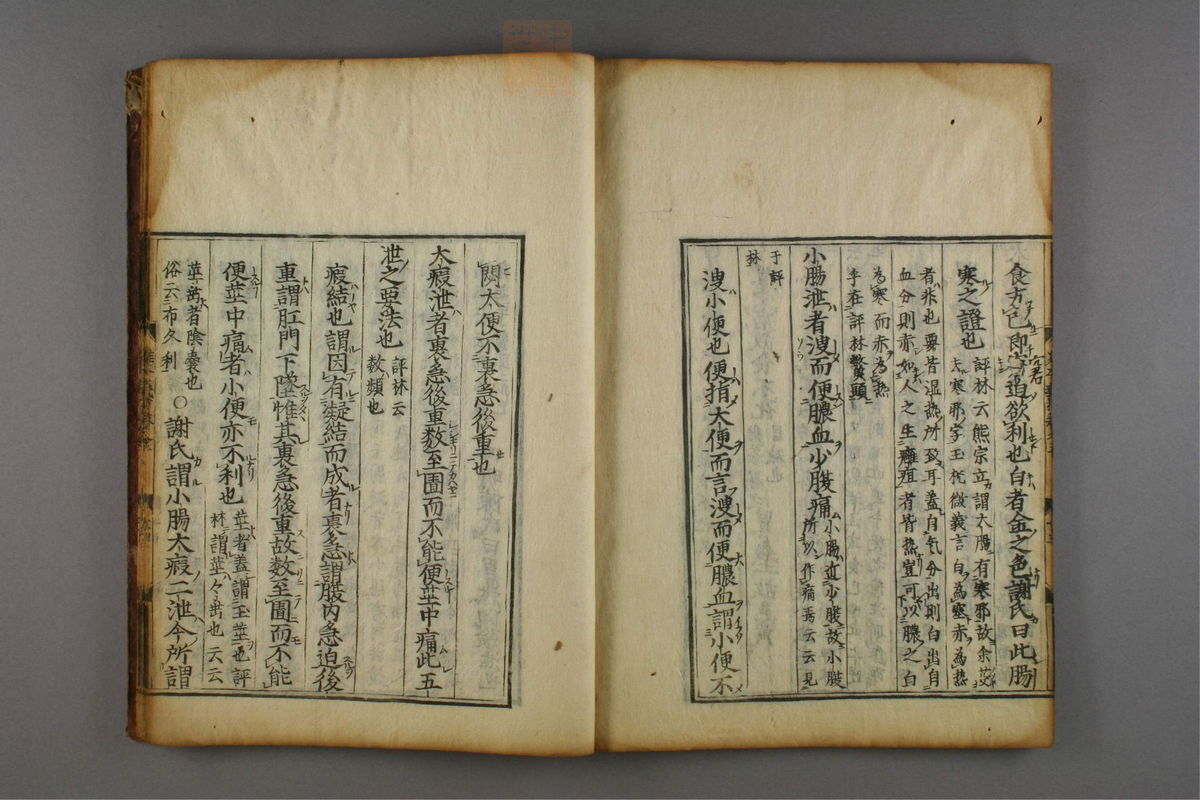 食方已即窘迫欲利也白者金之色謝氏曰此腸
寒之證也
評林云熊宗立謂大腸有寒邪故余
夫寒邪字玉机微義言白為寒赤為熱
者非也要皆湿熱所致耳蓋自气分出則白自
血分則赤如人之生癰疽者皆熱豈可以膿之白
為寒而赤為熱
李在評林
小腸泄者溲而便膿血少腹痛
小腸近少腹故小腹
所以作痛焉云云見
于評
林
溲小便也便指大便而言溲而便膿血謂小便不
悶大便不裏急後重也
大瘕泄者裏急後重数至圊而不能便莖中痛此五
泄之要法也
評林云
数頻也
瘕結也謂因有凝結而成者裏急謂腹内急迫後
重謂肛門下墜惟其裏急後重故数至圊而不能
便莖中痛者小便亦不利也
莖者蓋謂玉莖也評
林謂莖々
也云云
者陰嚢也
俗云布久利
○謝氏謂小腸大瘕二泄今所謂